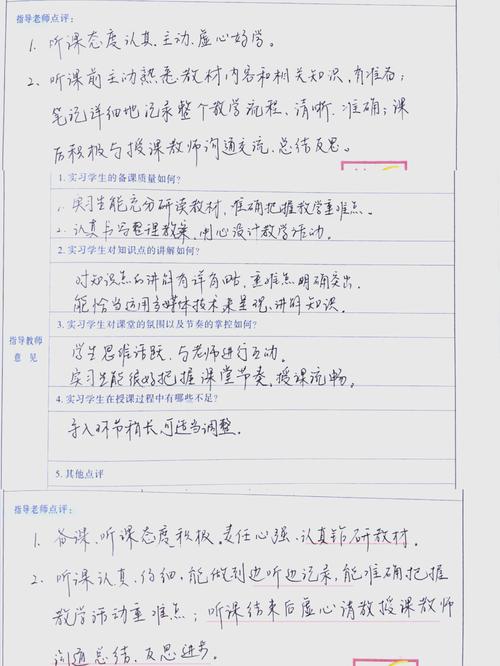 指导老师点评：
1. 听课态度认真、主动、虚心好学。
2、听课前主动熟悉教材内容和相关知识，有准备；
笔记详细地记录整个教学流程、清晰、准确；课
后积极与授课教师沟通交流、总结反思。
1. 实习学生的备课质量如何？
1. 实习生能充分研读教材，准确把握教学重难点。
2. 认真书写整理教案，用心设计教学活动。
2. 实习学生对知识点的讲解如何？
对知识点的讲解有详有略，重难点明确突出。
能恰当运用多媒体技术来呈现、讲解知识。
3. 实习学生对课堂的氛围以及节奏的掌控如何？
学生思维活跃，与老师进行互动。
实习生能很好把握课堂节奏，授课流畅。
指导教师
意 见
4. 实习学生在授课过程中有哪些不足？
导入环节稍长，可适当调整。
5. 其他点评
指导老师点评：
1. 备课、听课态度积极、责任心强、认真钻研教材。
2. 听课认真、仔细，能做到边听边记录，能准确把握
教学活动重难点；听课结束后虚心请教授课教师
沟通总结、反思进步